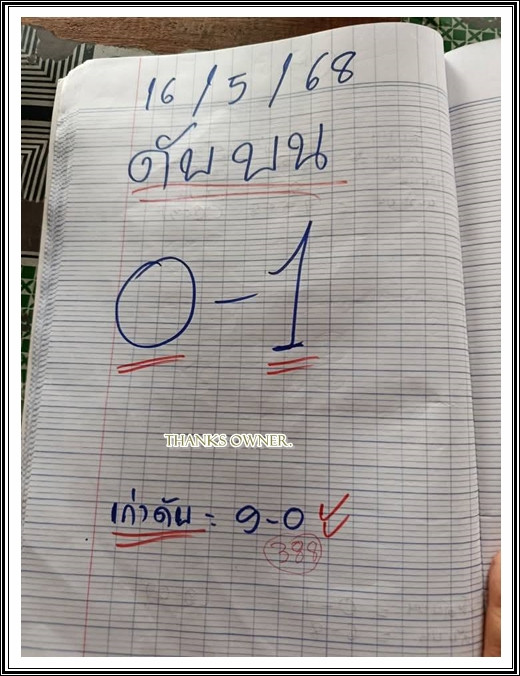 16/5/68
ดับบน
0-1
THANKS OWNER.
เก่าดับ = 9-0
388